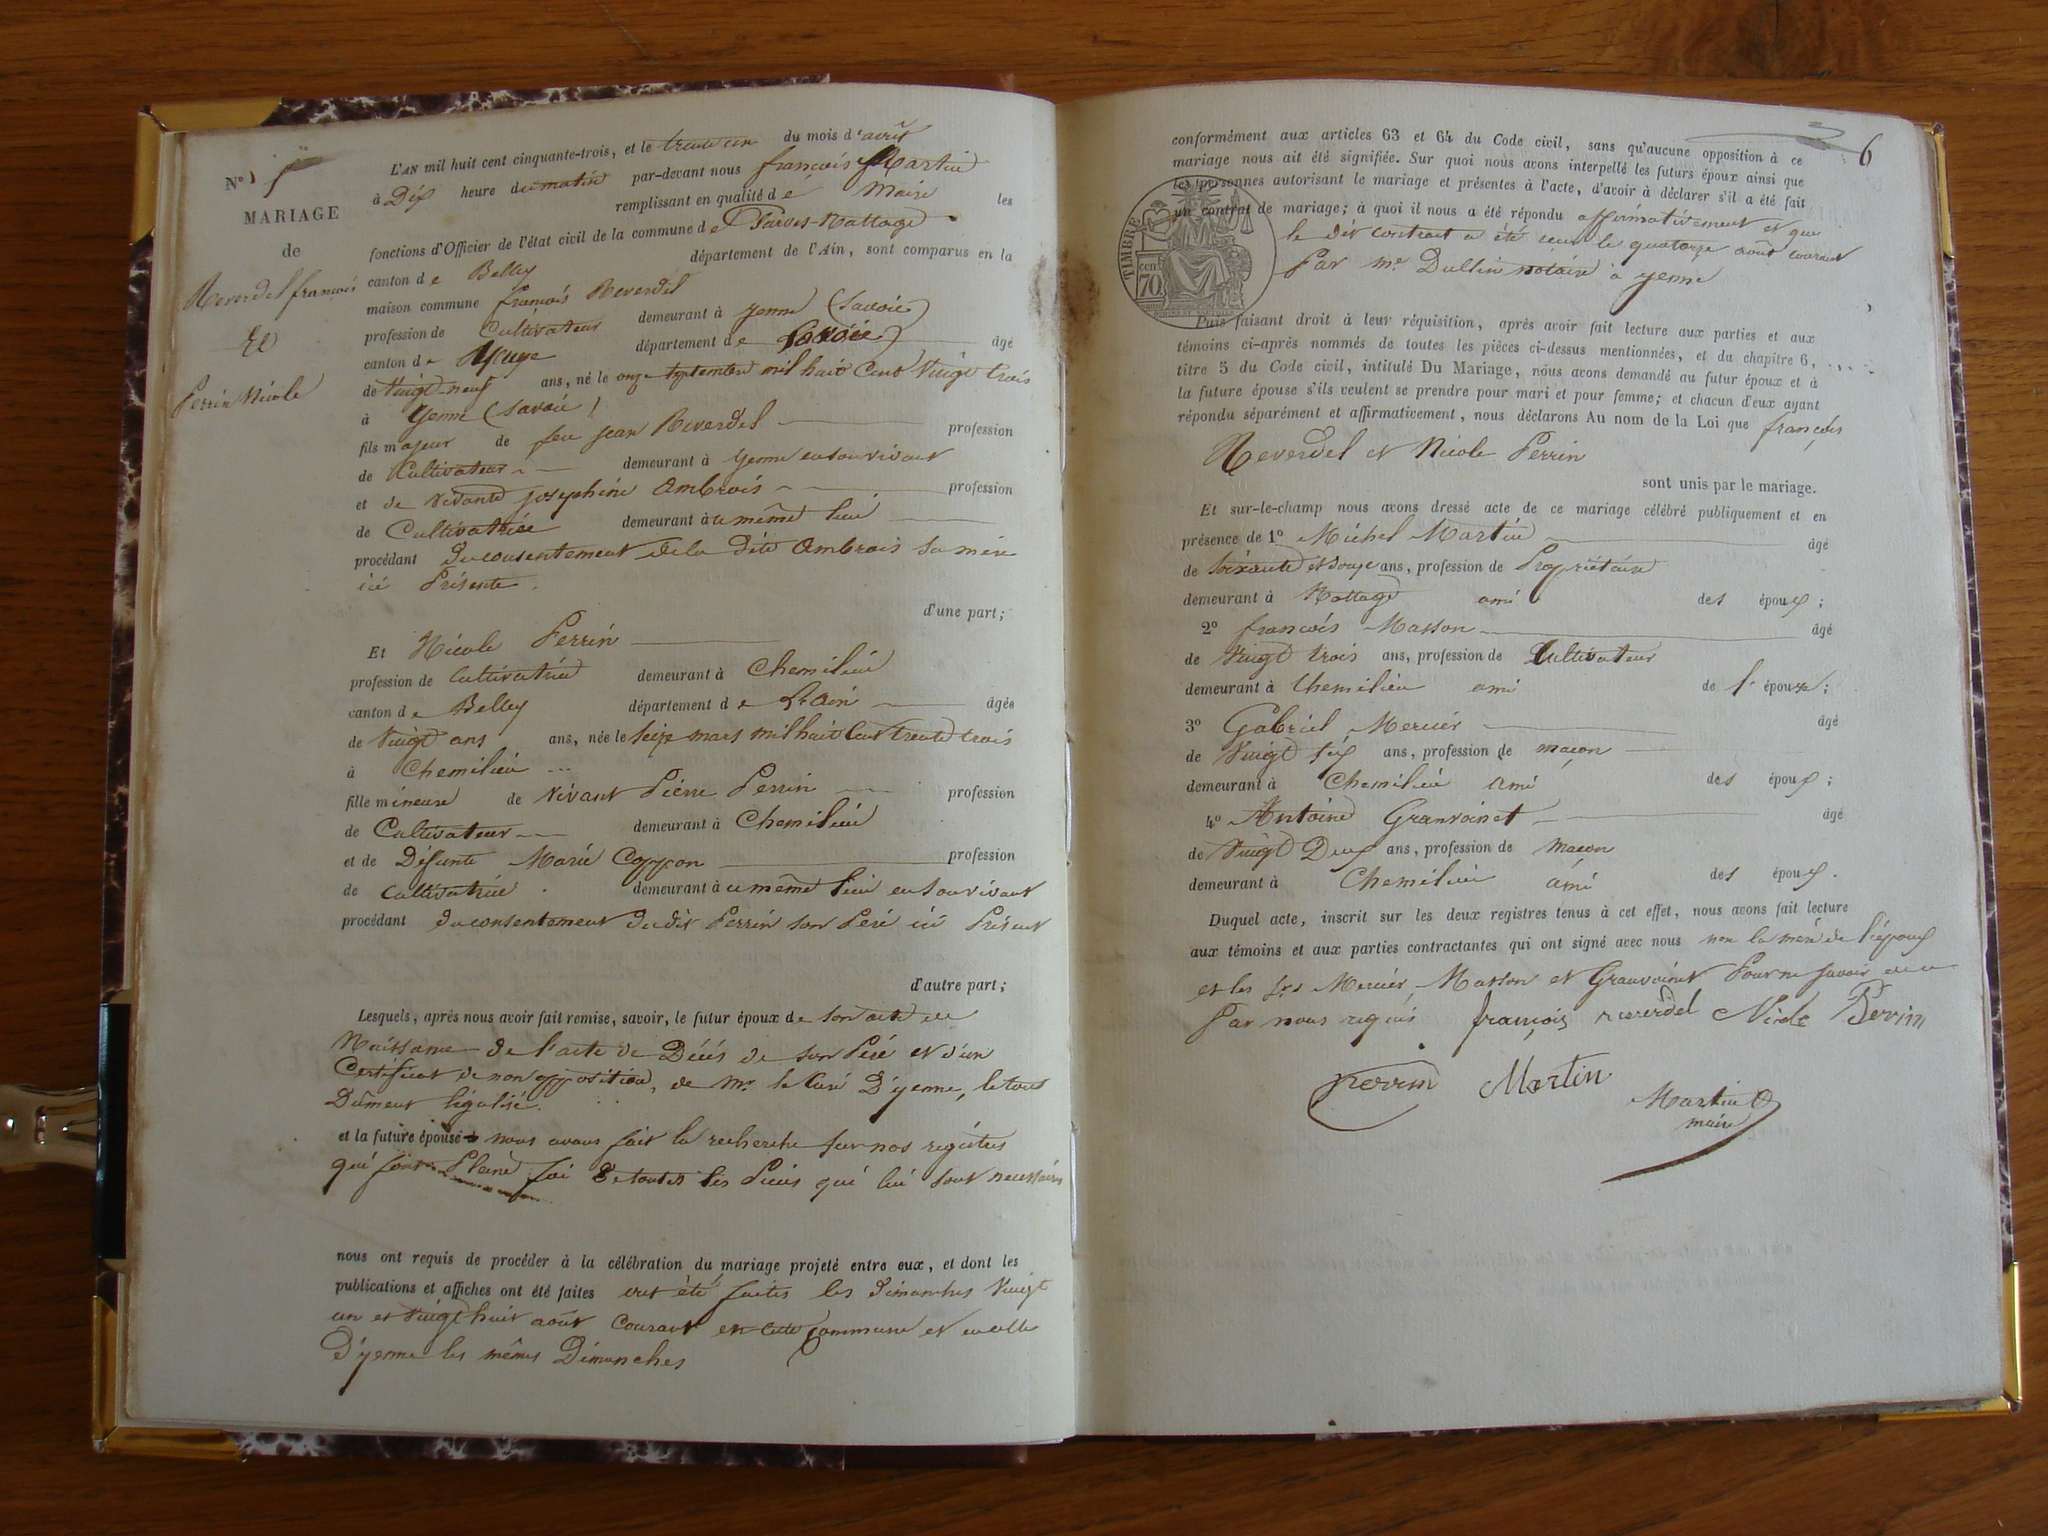 N° 5
MARIAGE
de
Reverdel françois
Et
Perrin Nicole
L'AN mil huit cent cinquante-trois, et le trente un du mois d'août
à Dix heure du matin par-devant nous françois Martin
remplissant en qualité de Maire les
fonctions d'Officier de l'état civil de la commune de Parves-Nattage
canton de Belley département de l'Ain, sont comparus en la
maison commune françois Reverdel
profession de Cultivateur demeurant à yenne (Savoie)
canton de département de Savoie âgé
de Vingt-neuf ans, né le onze septembre mil huit Cent Vingt trois
à Yenne (Savoie)
fils majeur de feu jean Reverdel profession
de Cultivateur demeurant à yenne en son vivant
et de vivante josephine Ambrois profession
de Cultivatrice demeurant à u même lieu
procédant du consentement de la dite Ambrois sa mère
ici Présente.
d'une part;
Et Nicole Perrin
profession de Cultivatrice demeurant à Chemilieu
canton de Belley département de L'Ain âgée
de Vingt ans ans, née le seize mars mil huit Cent trente trois
à Chemilieu
fille mineure de vivant Pierre Perrin profession
de Cultivateur demeurant à Chemilieu
et de Défunte Marie profession
de Cultivatrice demeurant à u même lieu en son vivant
procédant du consentement du dit Perrin son Père ici Présent
d'autre part;
Lesquels, après nous avoir fait remise, savoir, le futur époux de son acte de
Naissance de l'acte de Décés de son Père et d'un
Certificat de non opposition, de Mr le Curé D'yenne, le tout
Dument légalisé.
et la future épouse nous avons fait la recherche sur nos registres
qui font Pleine foi de toutes les Pièces qui lui sont necessaires
nous ont requis de procéder à la célébration du mariage projeté entre eux, et dont les
publications et affiches ont été faites ont été faites les dimanches Vingt
un et Vingt huit août Courant en cette commune et en celle
D'yenne les mêmes Dimanches
6
conformément aux articles 63 et 64 du Code civil, sans qu'aucune opposition à ce
mariage nous ait été signifiée. Sur quoi nous avons interpellé les futurs époux ainsi que
les personnes autorisant le mariage et présentes à l'acte, d'avoir à déclarer s'il a été fait
un contrat de mariage; à quoi il nous a été répondu affirmativement et que
le dit contrat a été reçu le quatorze août courant
Par Me Dullin notaire à yenne
TIMBRE
70 cent
Puis faisant droit à leur réquisition, après avoir fait lecture aux parties et aux
témoins ci-après nommés de toutes les pièces ci-dessus mentionnées, et du chapitre 6,
titre 5 du Code civil, intitulé Du Mariage, nous avons demandé au futur époux et à
la future épouse s'ils veulent se prendre pour mari et pour femme; et chacun d'eux ayant
répondu séparément et affirmativement, nous déclarons Au nom de la Loi que françois
Reverdel et Nicole Perrin
sont unis par le mariage.
Et sur-le-champ nous avons dressé acte de ce mariage célébré publiquement et en
présence de 1° Michel Martin âgé
de soixante et douze ans, profession de Propriétaire
demeurant à Nattage ami des époux;
2° françois Masson âgé
de Vingt trois ans, profession de Cultivateur
demeurant à Chemilieu ami de l'épouse;
3° Gabriel Mercier âgé
de Vingt six ans, profession de maçon
demeurant à Chemilieu ami des époux;
4° Antoine Granvoinet âgé
de Vingt Deux ans, profession de maçon
demeurant à Chemilieu ami des époux.
Duquel acte, inscrit sur les deux registres tenus à cet effet, nous avons fait lecture
aux témoins et aux parties contractantes qui ont signé avec nous non la mère de l'époux
et les srs Mercier, Masson et Granvoinet Pour ne savoir de ce
Par nous requis françois reverdel Nicole Perrin
Perrin Martin
Martin
maire